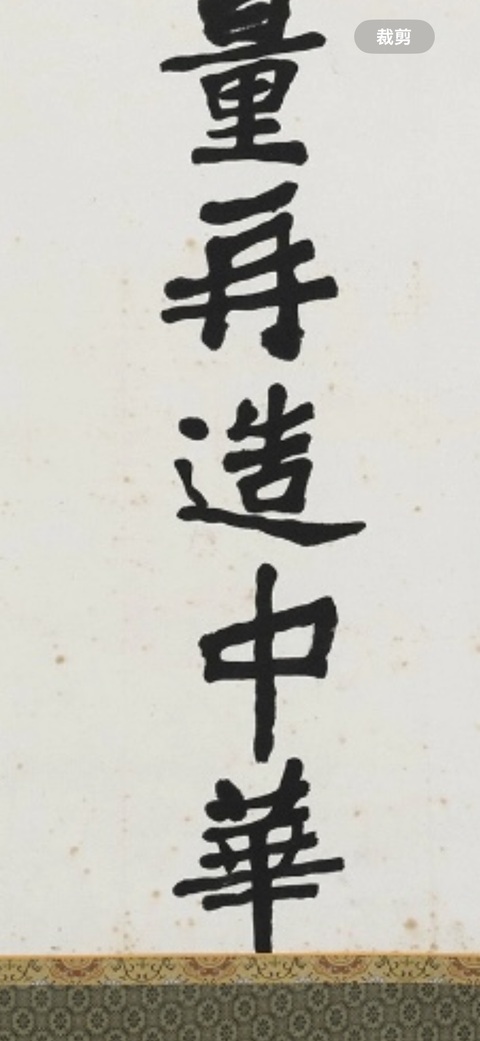 裁剪
量再造中華